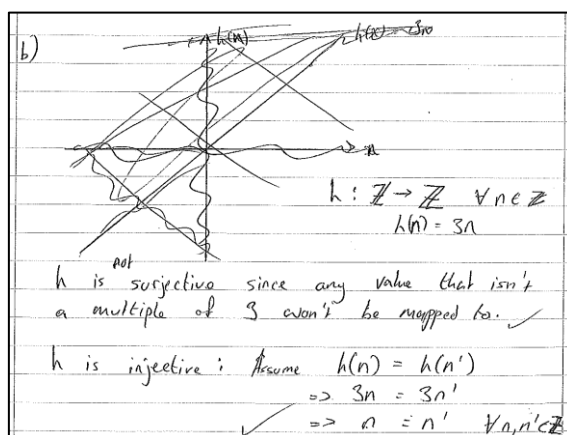 b)
h(n)
h(n) = 3n
n
h : ℤ → ℤ ∀ n ∈ ℤ
h(n) = 3n
h is not surjective since any value that isn't
a multiple of 3 won't be mapped to. ✓
h is injective : Assume h(n) = h(n')
=> 3n = 3n'
✓ => n = n' ∀n,n'∈ℤ